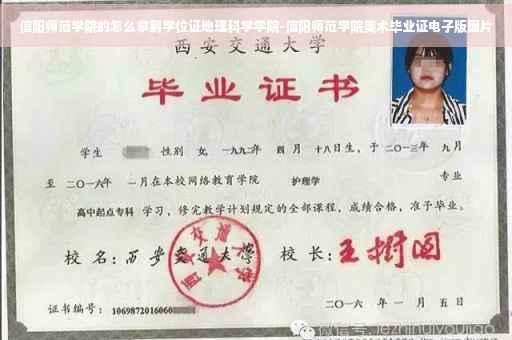 信阳师范学院的怎么拿到学位证地理科学学院-信阳师范学院美术毕业证电子版图片
西安交通大学
毕业证书
学生 性别 女, 一九九二年 四月 十八日生, 于 二〇一三年 九月
至 二〇一六年 一月在本校网络教育学院 护理学 专业
高中起点专科 学习, 修完教学计划规定的全部课程, 成绩合格, 准予毕业。
校名: 西安交通大学 校长: 王树国
西安交通大学
证书编号: 1069872016060
二〇一六 年 一 月 五 日
微信号: jezhihuiyoujiao